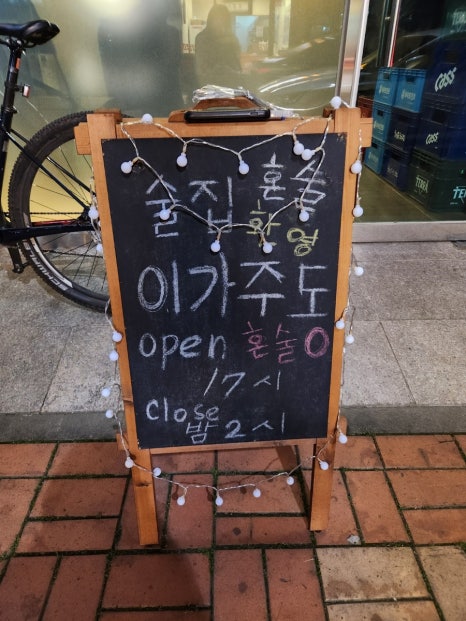 술집 혼술
환영
이가주도
open 혼술O
17시
close
밤 2시
Cass
Cass
TERRA
TERRA